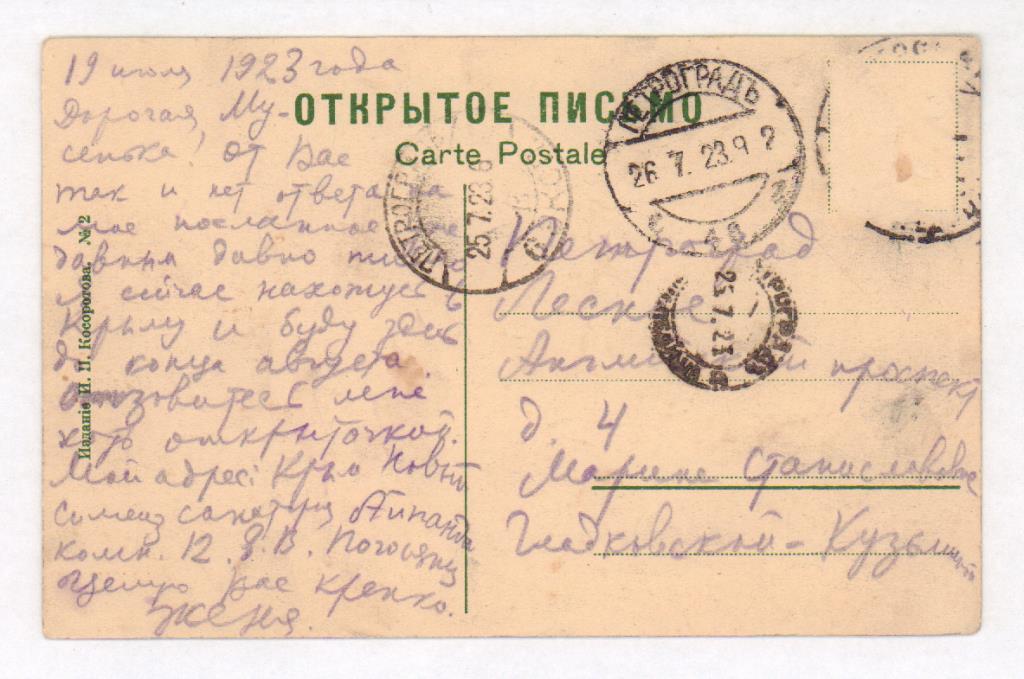 19 июля 1923 года
Дорогая Му-
сенька! От Вас
так и нет ответа на
мое посланное
давным давно
Я сейчас нахожусь в
Крыму и буду здесь
до конца августа.
мне
хоть открыточкой.
Мой адрес: Крым Новый
Симеиз санаторий
комн. 12. Е.В.
целую Вас крепко.
Женя.
Изданіе И. П. Косоротова. № 2
ОТКРЫТОЕ ПИСЬМО
Carte Postale
ПЕТРОГРАДЪ
26.7.23.9
ПЕТРОГРАД
25.7.23.8
ПЕТРОГРАДЪ
25.7.23
Петроград
Лесное
Английский проспект
д. 4
Марине Станиславовне
Гладковской-Кузьминой